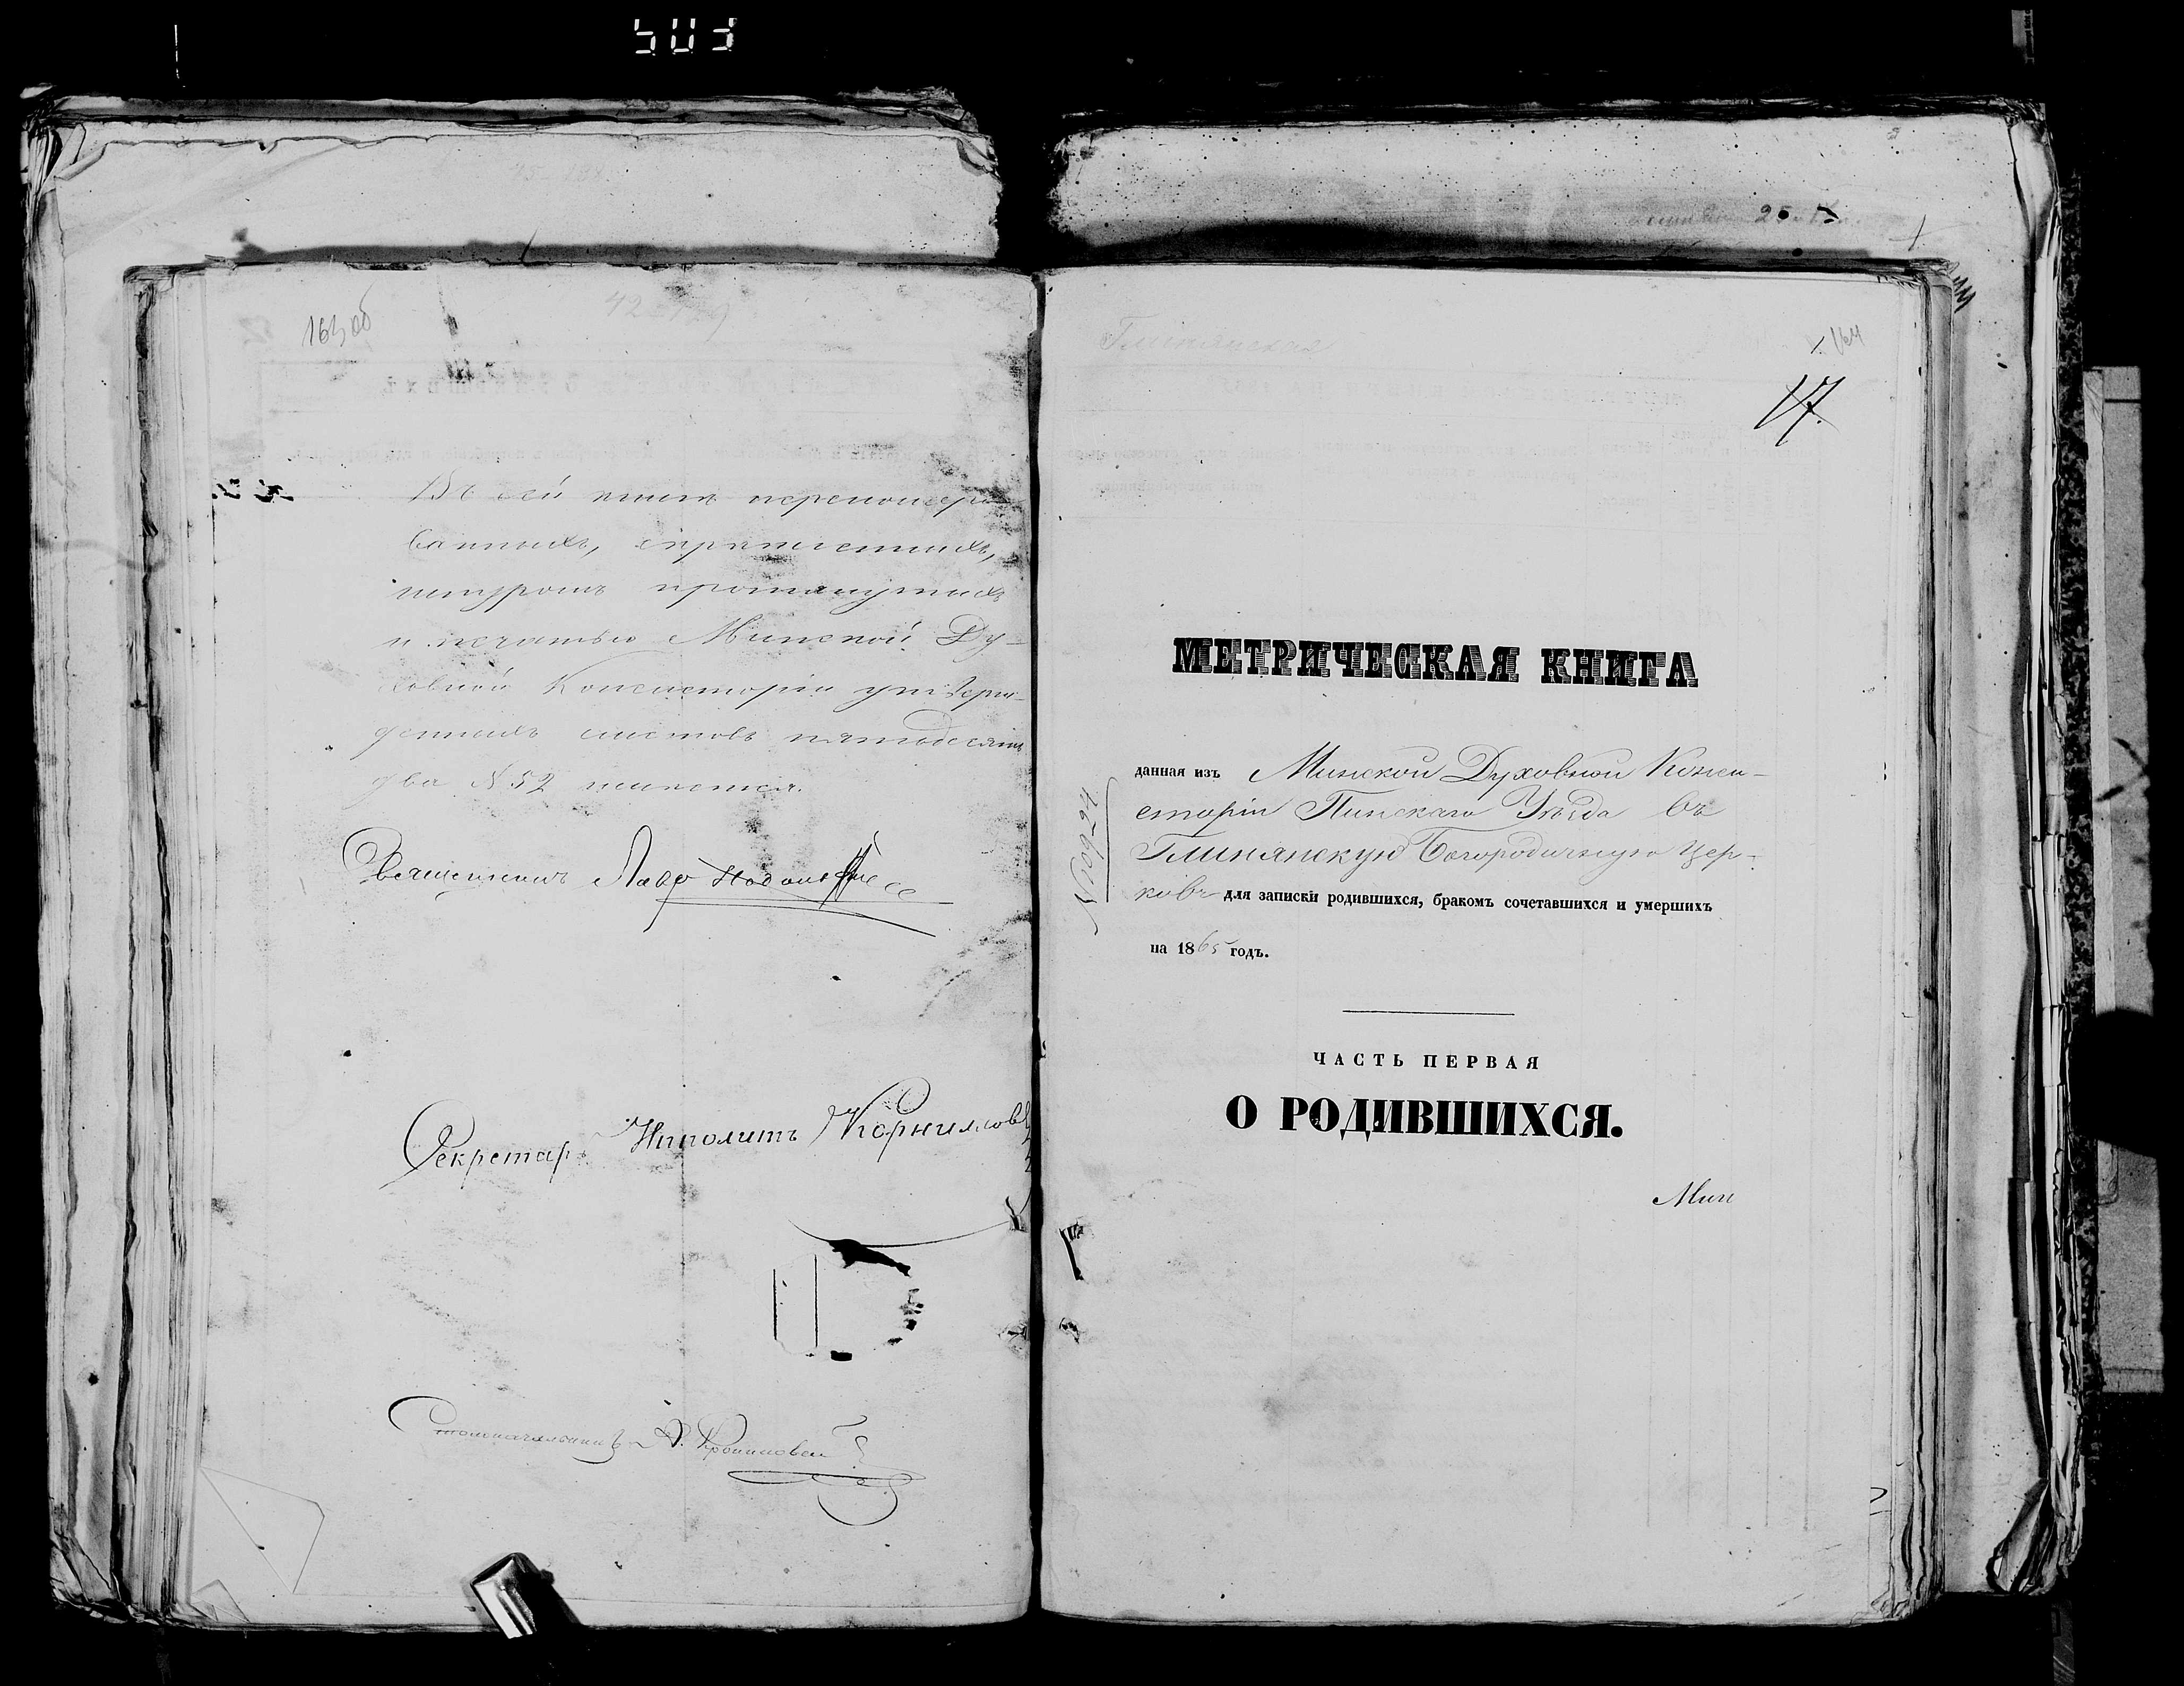 503
163об
Въ сей книгѣ перенумеро-
ванныхъ, скрѣпленныхъ,
шнуромъ протянутыхъ
и печатью Минской Ду-
ховной Консисторіи утверж-
денныхъ листовъ пятьдесятъ
два № 52 имѣется.
Священникъ
Секретарь Ипполитъ Корниллов
Столоначальникъ
Глинянская
164
17.
МЕТРИЧЕСКАЯ КНИГА
данная изъ Минской Духовной Конси-
сторіи Пинскаго Уѣзда въ
Глинянскую Богородичную Цер-
ковь для записки родившихся, бракомъ сочетавшихся и умершихъ
на 1865 годъ.
ЧАСТЬ ПЕРВАЯ
О РОДИВШИХСЯ.
Мин